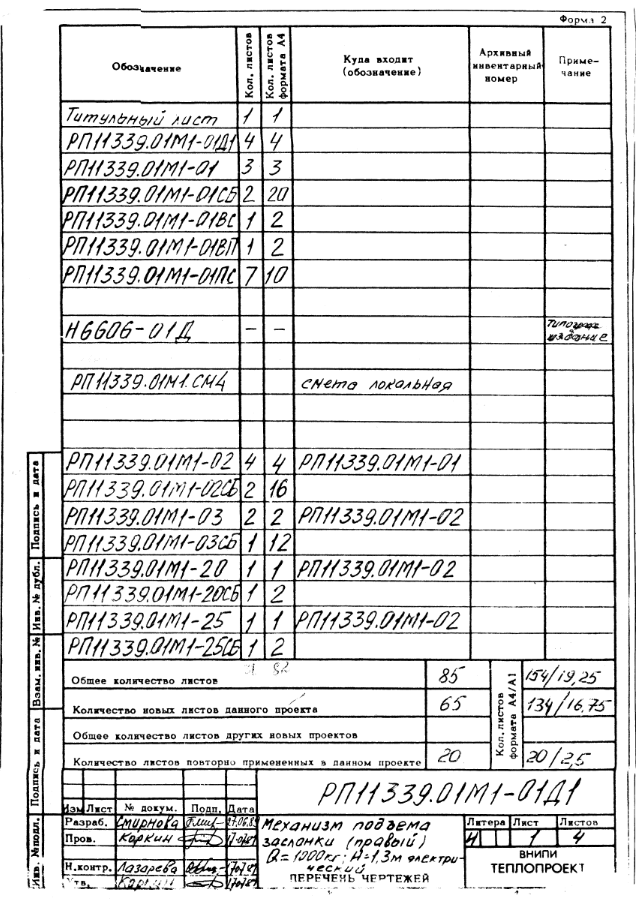 Форма 2
Обозначение | Кол. листов | Кол. листов формата А4 | Куда входит (обозначение) | Архивный инвентарный номер | Примечание
Титульный лист 1 1
РП11339.01М1-01Д1 4 4
РП11339.01М1-01 3 3
РП11339.01М1-01СБ 2 20
РП11339.01М1-01ВС 1 2
РП11339.01М1-01ВП 1 2
РП11339.01М1-01ПС 7 10
Н6606-01Д – – издание
РП11339.01М1.СМ4 смета локальная
РП11339.01М1-02 4 4 РП11339.01М1-01
РП11339.01М1-02СБ 2 16
РП11339.01М1-03 2 2 РП11339.01М1-02
РП11339.01М1-03СБ 1 12
РП11339.01М1-20 1 1 РП11339.01М1-02
РП11339.01М1-20СБ 1 2
РП11339.01М1-25 1 1 РП11339.01М1-02
РП11339.01М1-25СБ 1 2
Общее количество листов 85 154/19,25
Количество новых листов данного проекта 65 134/16,75
Общее количество листов других новых проектов
Количество листов повторно примененных в данном проекте 20 20/2,5
Кол. листов формата А4/А1
РП11339.01М1-01Д1
Изм Лист № докум. Подп. Дата
Разраб. Смирнова
Пров. Каркин
Н.контр. Лазарева
Утв.
Механизм подъема
заслонки (правый)
Q=1000кг; Н=1,3м электри-
ческий
ПЕРЕЧЕНЬ ЧЕРТЕЖЕЙ
Литера Лист Листов
И 1 4
ВНИПИ
ТЕПЛОПРОЕКТ
Подпись и дата
Инв. № дубл.
Взам. инв. №
Подпись и дата
Инв. № подл.